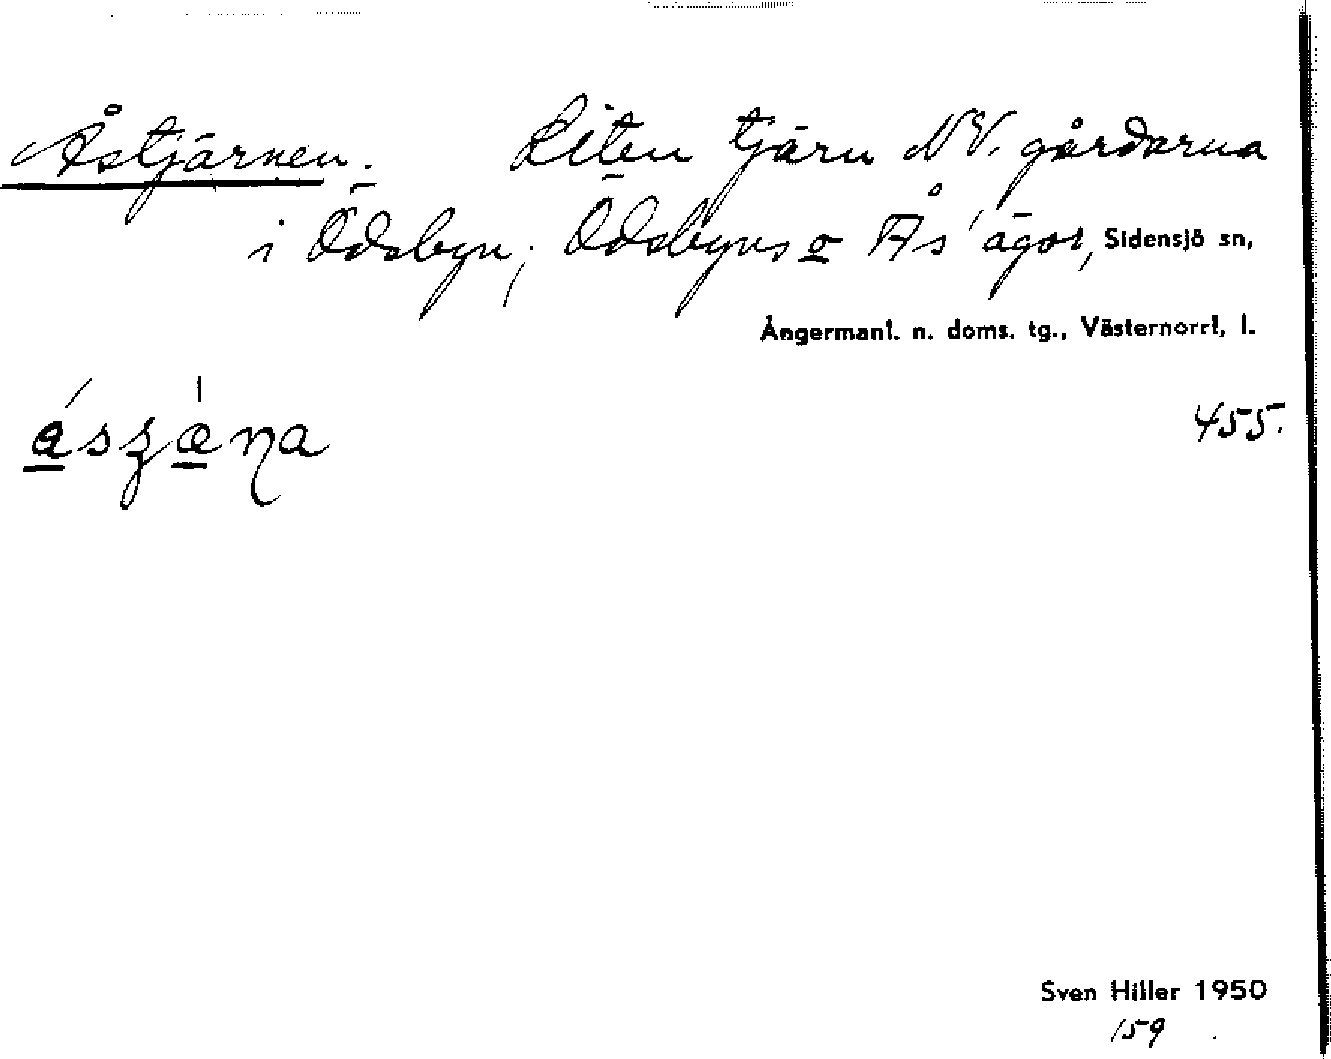 Åstjärnen. Liten tjärn NV. gårdarna
i Ödsbyn; Ödsbyns o Ås' ägor, Sidensjö sn,
Ångermanl. n. doms. tg., Västernorrl, l.
455.
Sven Hiller 1950
159